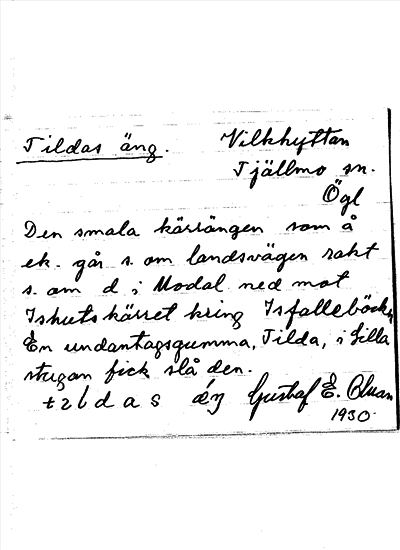 Tildas äng. Vilkhyttan
Tjällmo sn.
Ögl
Den smala kärrängen som å
ek. går s. om landsvägen rakt
s. om d i Modal ned mot
kärret kring Isfallebäck
En undantagsgumma, Tilda, i Lilla
stugan fick slå den.
tzldas Gustaf E.
1930.